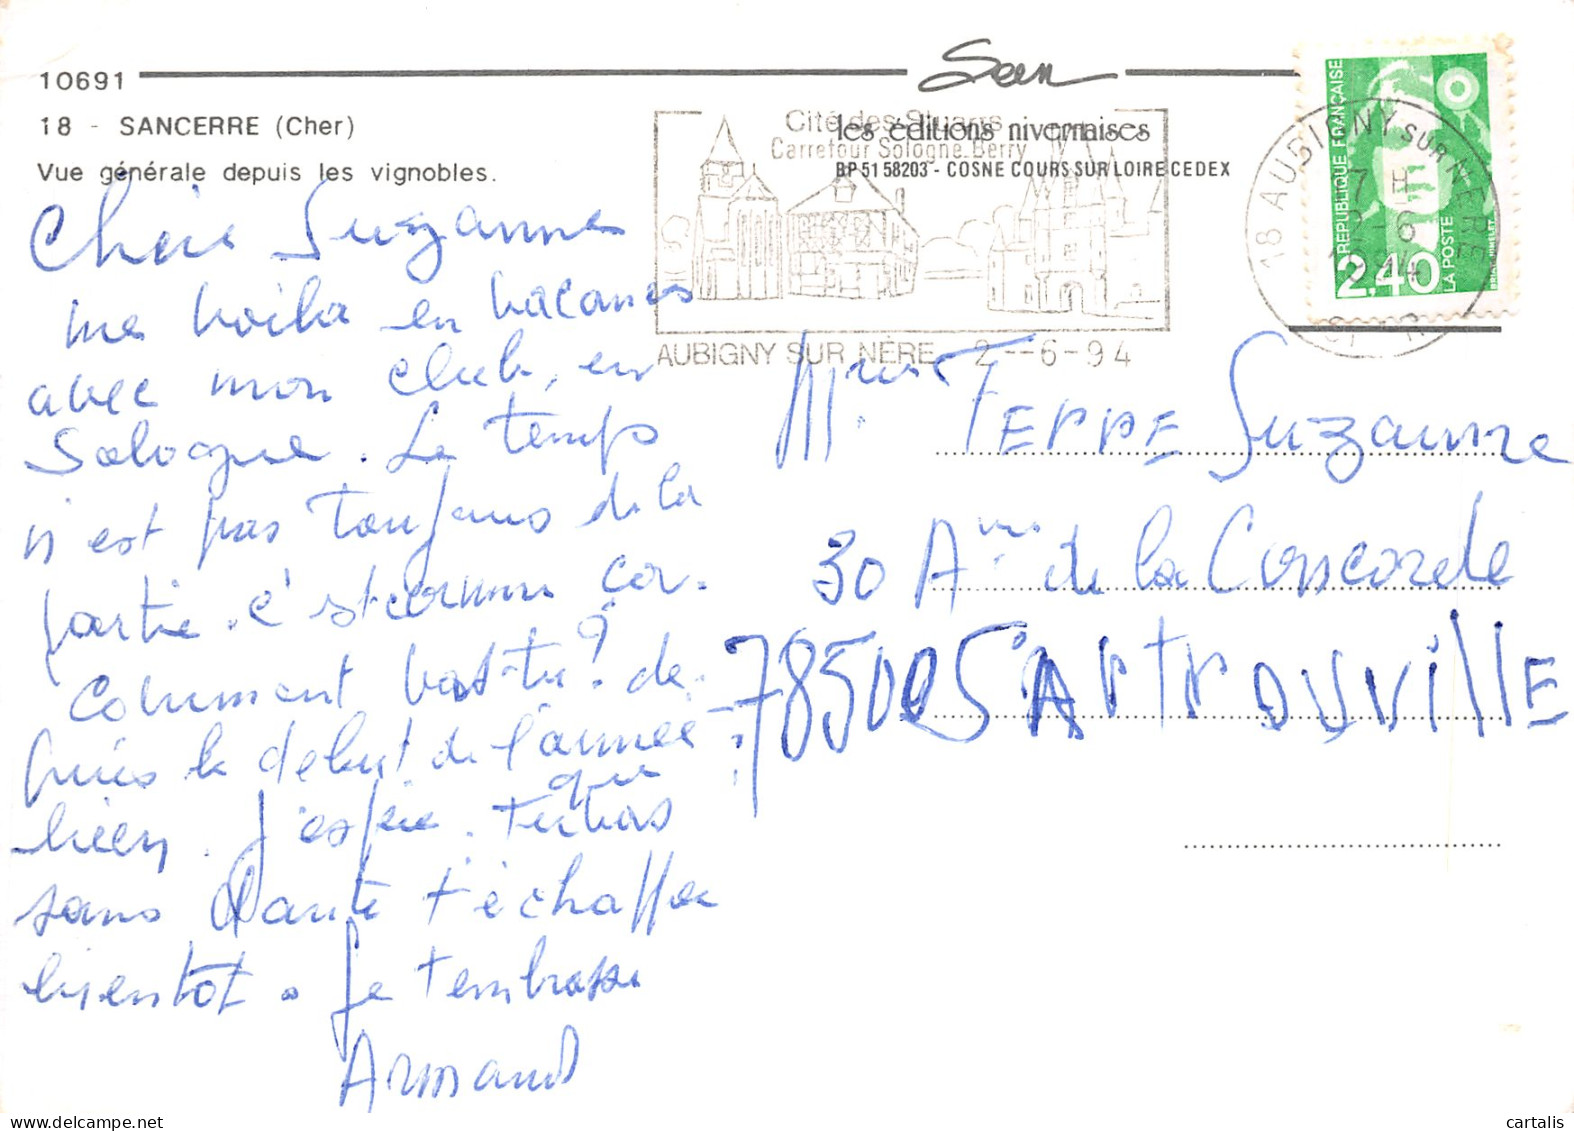 10691
Seen
18 - SANCERRE (Cher)
Vue générale depuis les vignobles.
Cité des Stuarts
les éditions nivernaises
Carrefour Sologne.Berry
BP 51 58203 - COSNE COURS SUR LOIRE CEDEX
AUBIGNY SUR NÈRE 2--6-94
18 AUBIGNY SUR NERE
7 H
2-6
CHER
REPUBLIQUE FRANÇAISE
2,40
LA POSTE
Chère Suzanne
me voila en vacances
avec mon club, en
Sologne. Le temps
n'est pas toujours de la
partie. c'est comme ça.
Comment vas-tu? de
puis le debut de l'année
que
bien. J'espère. tu vas
sans Dante t'échapper
bientot. Je t'embrasse
Armand
FERRE Suzanne
30 A de la Concorde
78500 SARTROUVILLE
cartalis